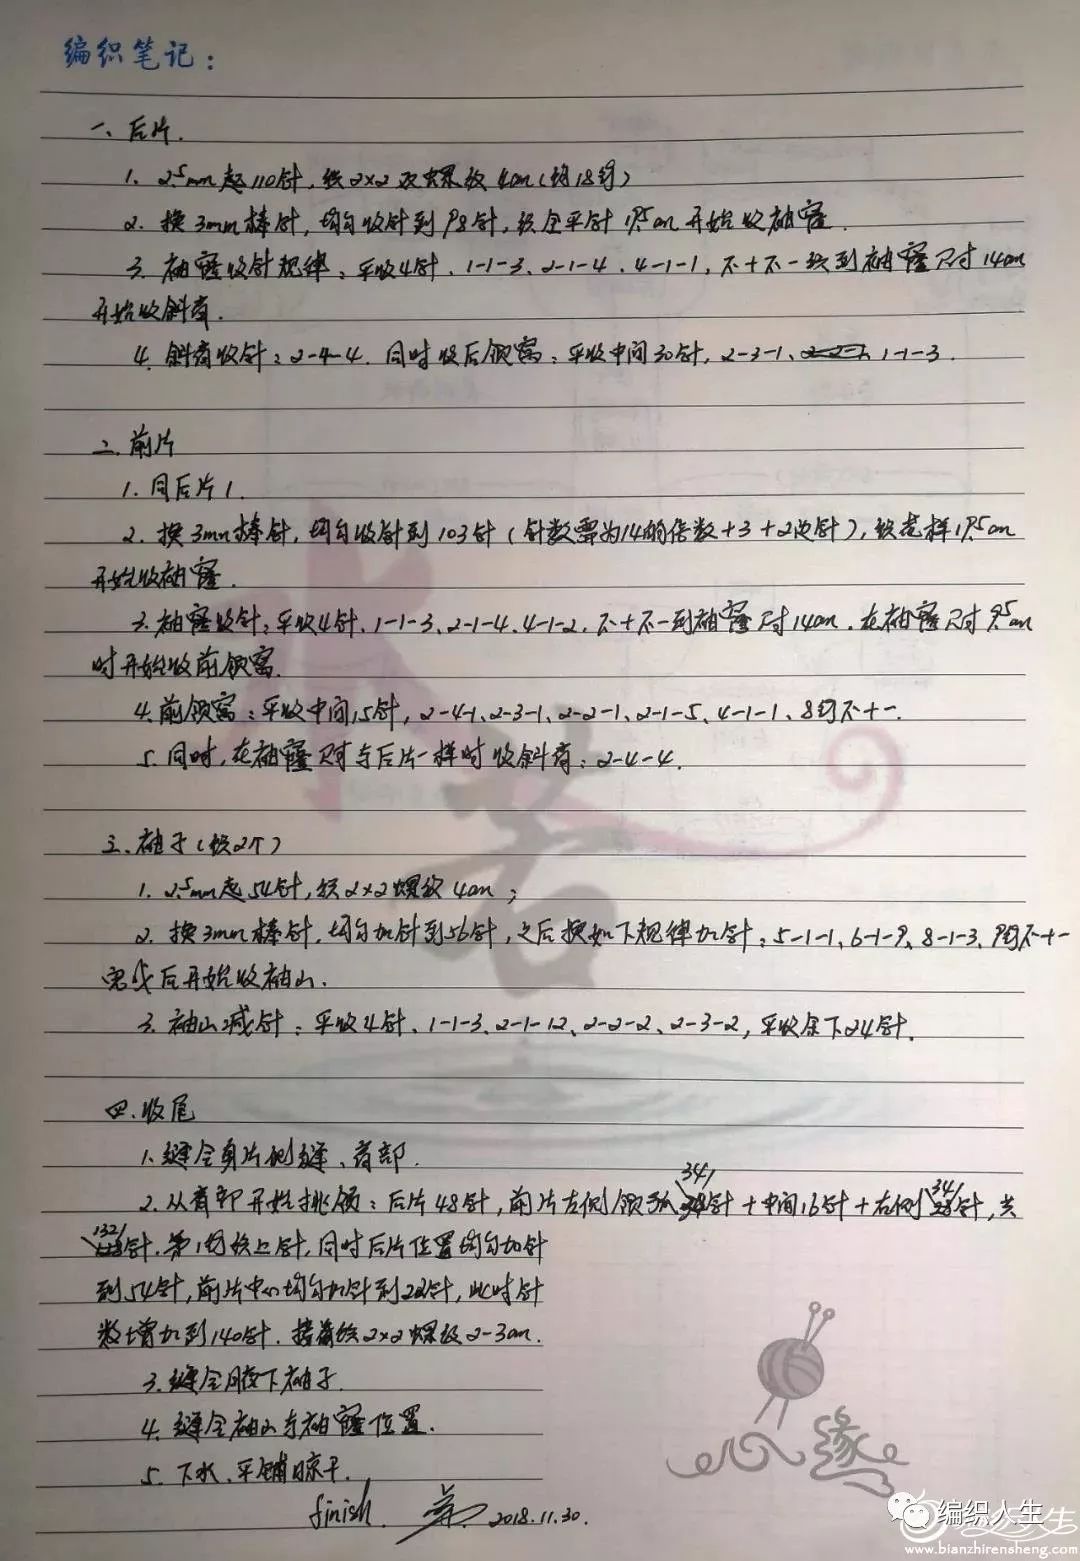 编织笔记：
一、后片.
1. 2.5mm起110针，织2×2双螺纹4cm(约18行)
2. 换3mm棒针，均匀收针到98针，织全平针19.5cm开始收袖窿.
3. 袖窿收针规律：平收4针、1-1-3、2-1-4、4-1-1，不十不一织到袖窿尺寸14cm
开始收斜肩.
4. 斜肩收针：2-4-4. 同时收后领窝：平收中间30针，2-3-1、1-1-3.
二.前片
1. 同后片1.
2. 换3mm棒针，均匀收针到103针（针数需为14的倍数+3+2边针），织花样19.5cm
开始收袖窿.
3. 袖窿收针：平收4针、1-1-3、2-1-4、4-1-2、不十不一到袖窿尺寸14cm. 在袖窿尺寸9.5cm
时开始收前领窝.
4. 前领窝：平收中间15针，2-4-1、2-3-1、2-2-1、2-1-5、4-1-1、8行不十一.
5. 同时，在袖窿尺寸与后片一样时收斜肩：2-4-4.
三、袖子(织2个)
1. 2.5mm起54针，织2×2螺纹4cm；
2. 换3mm棒针，均匀加针到56针，之后换如下规律加针：5-1-1、6-1-9、8-1-3、9行不十一
完成后开始收袖山.
3. 袖山减针：平收4针、1-1-3、2-1-12、2-2-2、2-3-2，平收余下24针.
四.收尾
1. 缝合身片侧缝、肩部.
2. 从肩部开始挑领：后片48针，前片左侧领弧34针+中间16针+右侧34针，共
132针. 第1行织上针，同时后片位置均匀加针
到54针，前片中心均匀加针到22针，此时针
数增加到140针. 接着织2×2螺纹2-3cm.
3. 缝合腋下袖子.
4. 缝合袖山与袖窿位置.
5. 下水、平铺晾干.
finish 2018.11.30.
水若
心缘
编织人生
www.bianzhirensheng.com